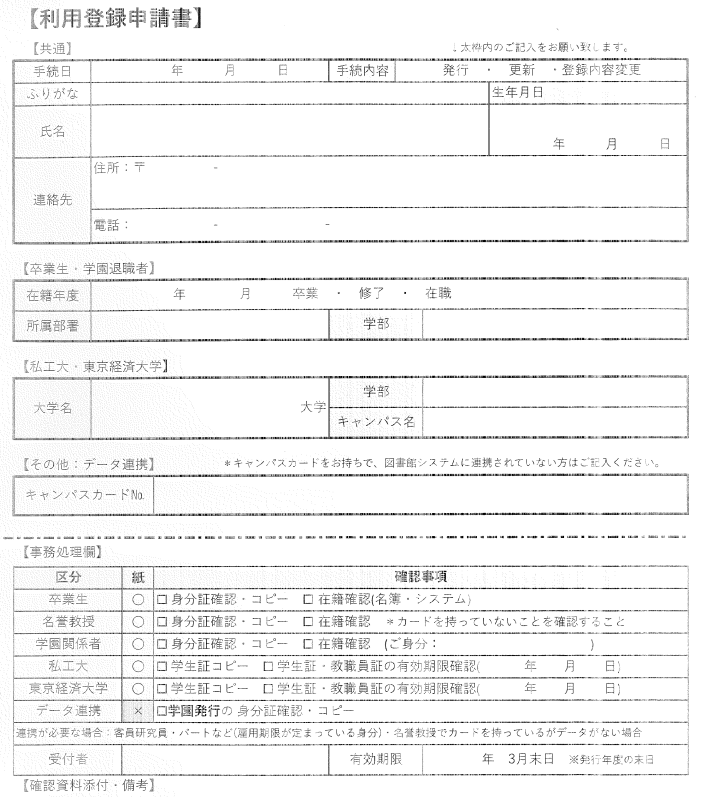 【利用登録申請書】
【共通】 ↓太枠内のご記入をお願い致します。
手続日 年 月 日 手続内容 発行 ・ 更新 ・登録内容変更
ふりがな 生年月日
氏名 年 月 日
連絡先 住所：〒 -
電話： - -
【卒業生・学園退職者】
在籍年度 年 月 卒業 ・ 修了 ・ 在職
所属部署 学部
【私工大・東京経済大学】
大学名 大学 学部
キャンパス名
【その他：データ連携】 ＊キャンパスカードをお持ちで、図書館システムに連携されていない方はご記入ください。
キャンパスカード№
【事務処理欄】
区分 紙 確認事項
卒業生 ○ □ 身分証確認・コピー □ 在籍確認(名簿・システム)
名誉教授 ○ □ 身分証確認・コピー □ 在籍確認 ＊カードを持っていないことを確認すること
学園関係者 ○ □ 身分証確認・コピー □ 在籍確認 (ご身分： )
私工大 ○ □ 学生証コピー □ 学生証・教職員証の有効期限確認( 年 月 日)
東京経済大学 ○ □ 学生証コピー □ 学生証・教職員証の有効期限確認( 年 月 日)
データ連携 × □学園発行の 身分証確認・コピー
連携が必要な場合：客員研究員・パートなど(雇用期限が定まっている身分)・名誉教授でカードを持っているがデータがない場合
受付者 有効期限 年 3月末日 ※発行年度の末日
【確認資料添付・備考】